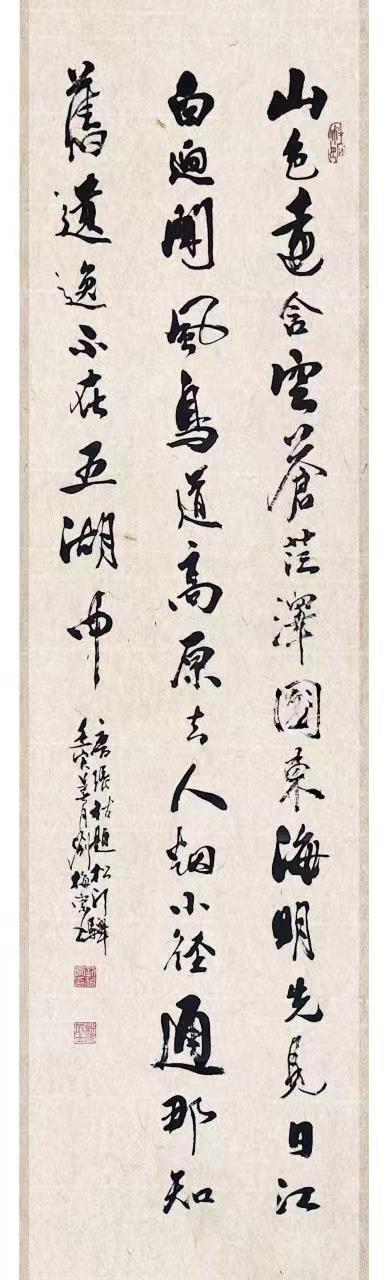 山色遠含空蒼茫澤國東海明先見日江
白逈聞風鳥道高原去人烟小徑通那知
舊遺逸不在五湖中
唐張祜題松汀驛
壬寅月劉梅